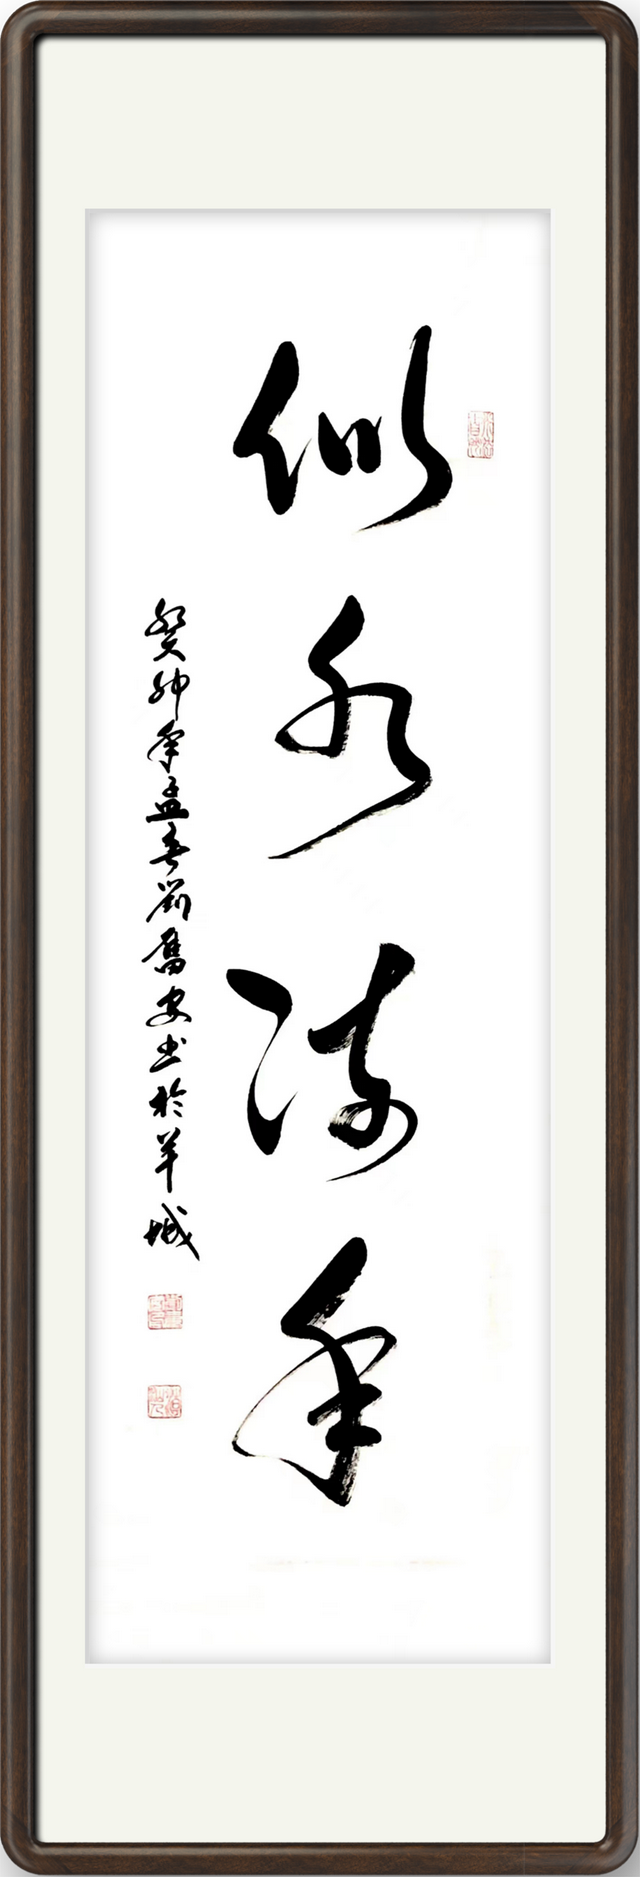 似水流年
癸卯年孟春劉奮安书於羊城